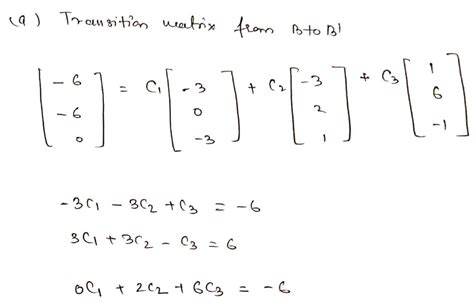 (a) Transition matrix from B to B'
[-6 -6 0] = C1 [-3 0 -3] + C2 [-3 2 1] + C3 [1 6 -1]
-3C1 - 3C2 + C3 = -6
3C1 + 3C2 - C3 = 6
0C1 + 2C2 + 6C3 = -6